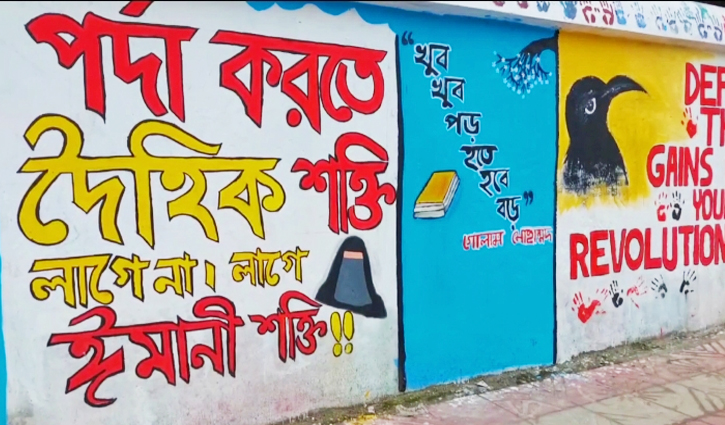 পর্দা করতে
দৈহিক শক্তি
লাগে না। লাগে
ঈমানী শক্তি!!
“খুব
খুব
পড়
হতে
হবে
বড়”
গোলাম মোহাম্মদ
DEF
TH
GAINS
YOU
REVOLUTION